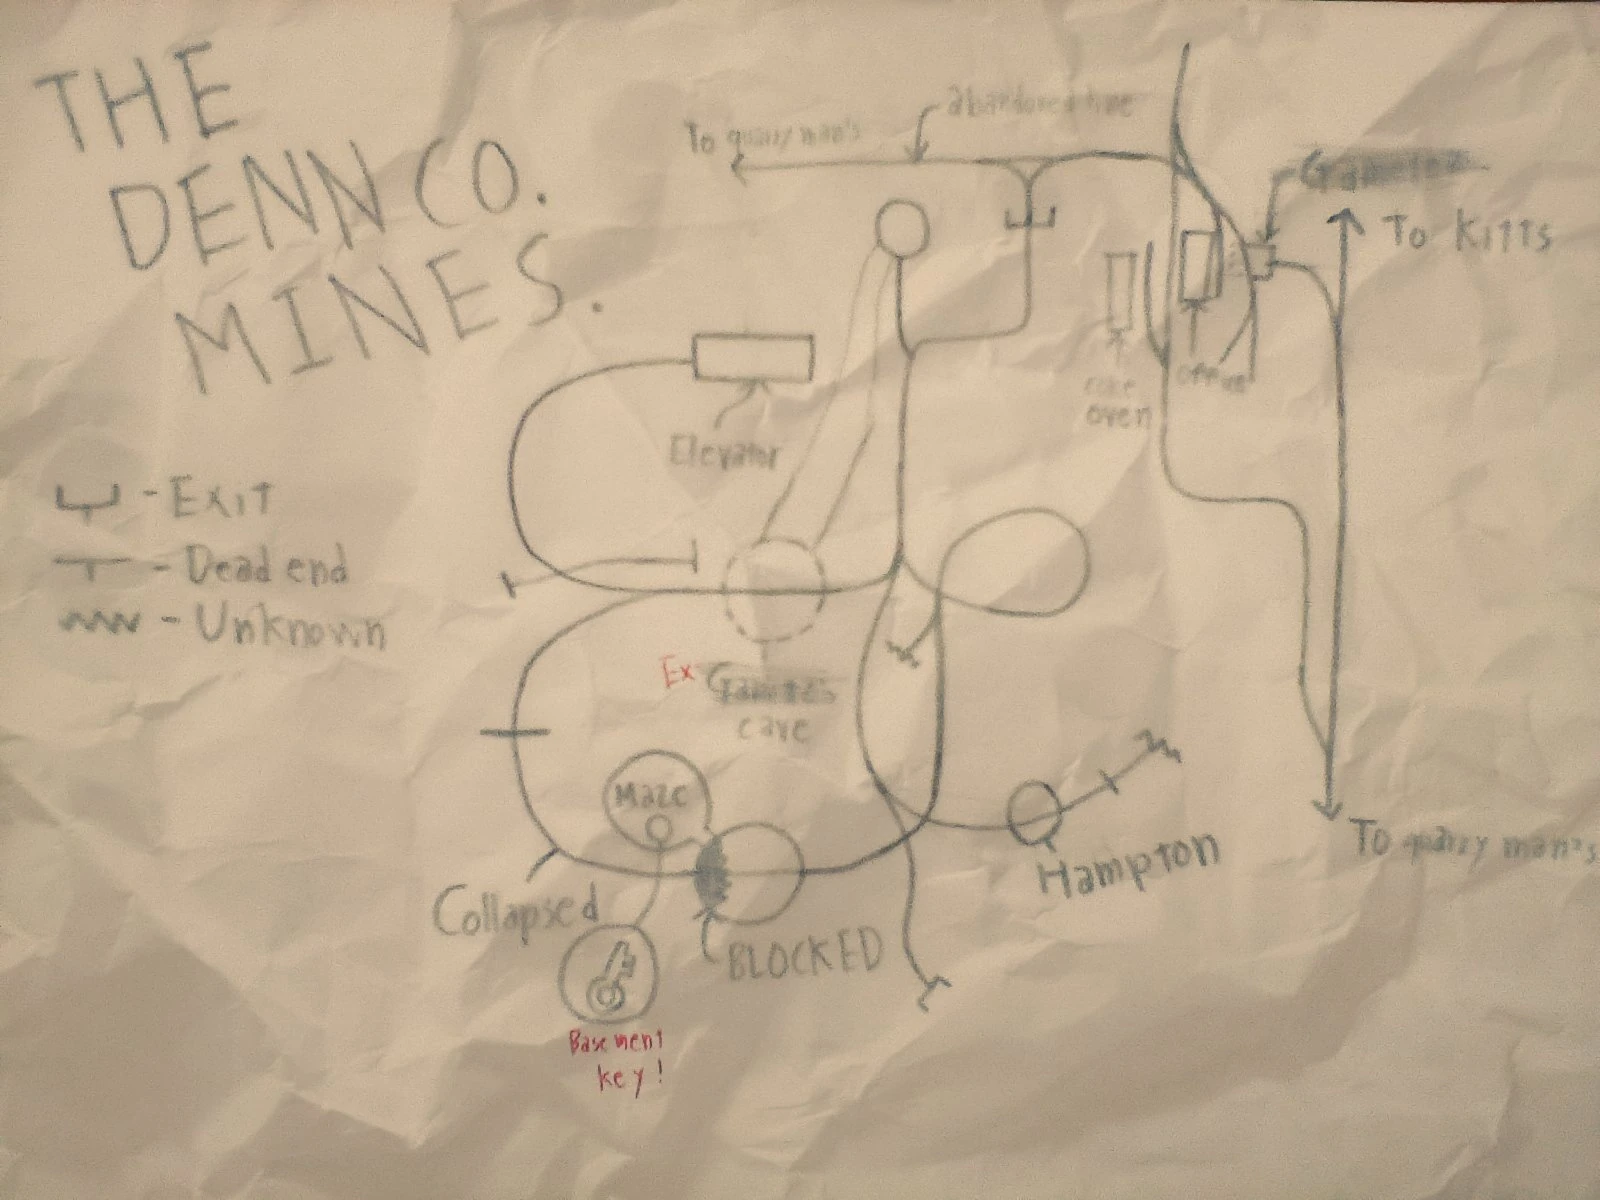 THE
DENN CO.
MINES.
abandoned line
To quarry man's
To Kitts
coke
oven
office
Elevator
- Exit
- Dead end
- Unknown
Ex
cave
Maze
Hampton
To quarry man's
Collapsed
BLOCKED
Basement
key!